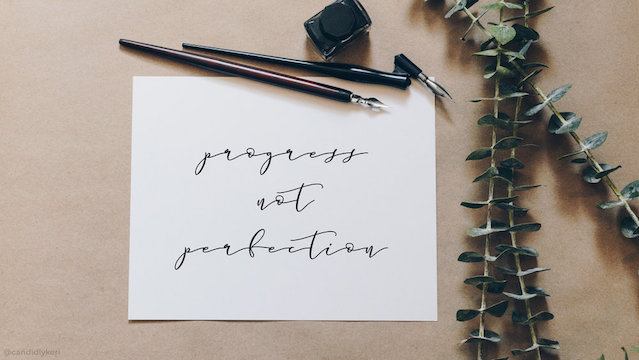 progress
not
perfection
@candidlykeri